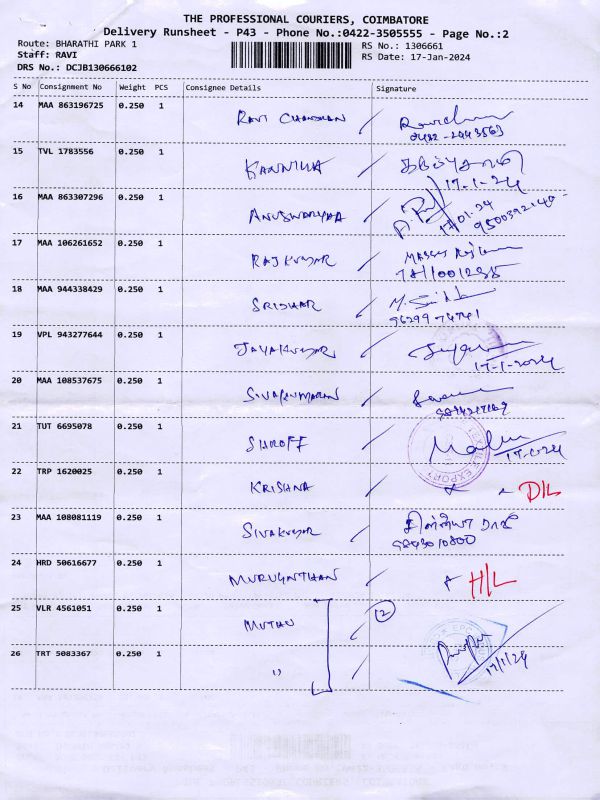 THE PROFESSIONAL COURIERS, COIMBATORE
Delivery Runsheet - P43 - Phone No.:0422-3505555 - Page No.:2
Route: BHARATHI PARK 1 RS No.: 1306661
Staff: RAVI RS Date: 17-Jan-2024
DRS No.: DCJB130666102
S No Consignment No Weight PCS Consignee Details Signature
14 MAA 863196725 0.250 1 RAVI
15 TVL 1783556 0.250 1
17.1.24
16 MAA 863307296 0.250 1
17/01.24
9500392140
17 MAA 106261652 0.250 1 RAJKUMAR
18 MAA 944338429 0.250 1 SRIDHAR
19 VPL 943277644 0.250 1 JAYAKUMAR
17-1-2024
20 MAA 108537675 0.250 1
21 TUT 6695078 0.250 1 SHROFF
22 TRP 1620025 0.250 1 KRISHNA D/L
23 MAA 108081119 0.250 1 SIVAKUMAR
9843010800
24 HRD 50616677 0.250 1 H/L
25 VLR 4561051 0.250 1 MUTHU 12
26 TRT 5083367 0.250 1 "
17/1/24